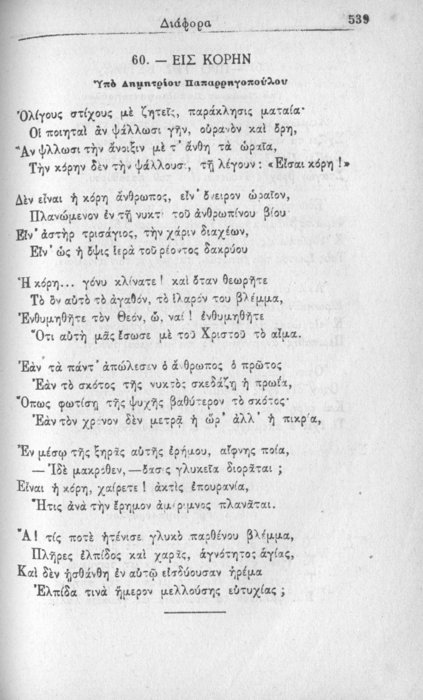 Διάφορα 539
60. — ΕΙΣ ΚΟΡΗΝ
Ὑπὸ Δημητρίου Παπαρρηγοπούλου
Ὀλίγους στίχους μὲ ζητεῖς, παράκλησις ματαία·
Οἱ ποιηταὶ ἂν ψάλλωσι γῆν, οὐρανὸν καὶ ὄρη,
Ἂν ψλλωσι τὴν ἄνοιξιν μὲ τ' ἄνθη τὰ ὡραῖα,
Τὴν κόρην δὲν τὴν ψάλλουσι, τῇ λέγουν: «Εἶσαι κόρη!»
Δὲν εἶναι ἡ κόρη ἄνθρωπος, εἶν' ὄνειρον ὡραῖον,
Πλανώμενον ἐν τῇ νυκτὶ τοῦ ἀνθρωπίνου βίου·
Εἶν' ἀστὴρ τρισάγιος, τὴν χάριν διαχέων,
Εἶν' ὡς ἡ ὄψις ἱερὰ τοῦ ῥέοντος δακρύου
Ἡ κόρη... γόνυ κλίνατε! καὶ ὅταν θεωρῆτε
Τὸ ὂν αὐτὸ τὸ ἀγαθόν, τὸ ἱλαρόν του βλέμμα,
Ἐνθυμηθῆτε τὸν Θεόν, ὤ, ναί! ἐνθυμηθῆτε
Ὅτι αὐτὴ μᾶς ἔσωσε μὲ τοῦ Χριστοῦ τὸ αἷμα.
Ἐὰν τὰ πάντ' ἀπώλεσεν ὁ ἄνθρωπος ὁ πρῶτος
Ἐὰν τὸ σκότος τῆς νυκτὸς σκεδάζῃ ἡ πρωΐα,
Ὅπως φωτίσῃ τῆς ψυχῆς βαθύτερον τὸ σκότος·
Ἐὰν τὸν χρόνον δὲν μετρᾷ ἡ ὥρ' ἀλλ' ἡ πικρία,
Ἐν μέσῳ τῆς ξηρᾶς αὐτῆς ἐρήμου, αἴφνης ποία,
— Ἰδὲ μακρόθεν, — ὄασις γλυκεῖα διορᾶται;
Εἶναι ἡ κόρη, χαίρετε! ἀκτὶς ἐπουρανία,
Ἥτις ἀνὰ τὴν ἔρημον ἀμέριμνος πλανᾶται.
Ἆ! τίς ποτὲ ἠτένισε γλυκὸ παρθένου βλέμμα,
Πλῆρες ἐλπίδος καὶ χαρᾶς, ἁγνότητος ἁγίας,
Καὶ δὲν ᾐσθάνθη ἐν αὐτῷ εἰσδύουσαν ἠρέμα
Ἐλπίδα τινὰ ἥμερον μελλούσης εὐτυχίας;